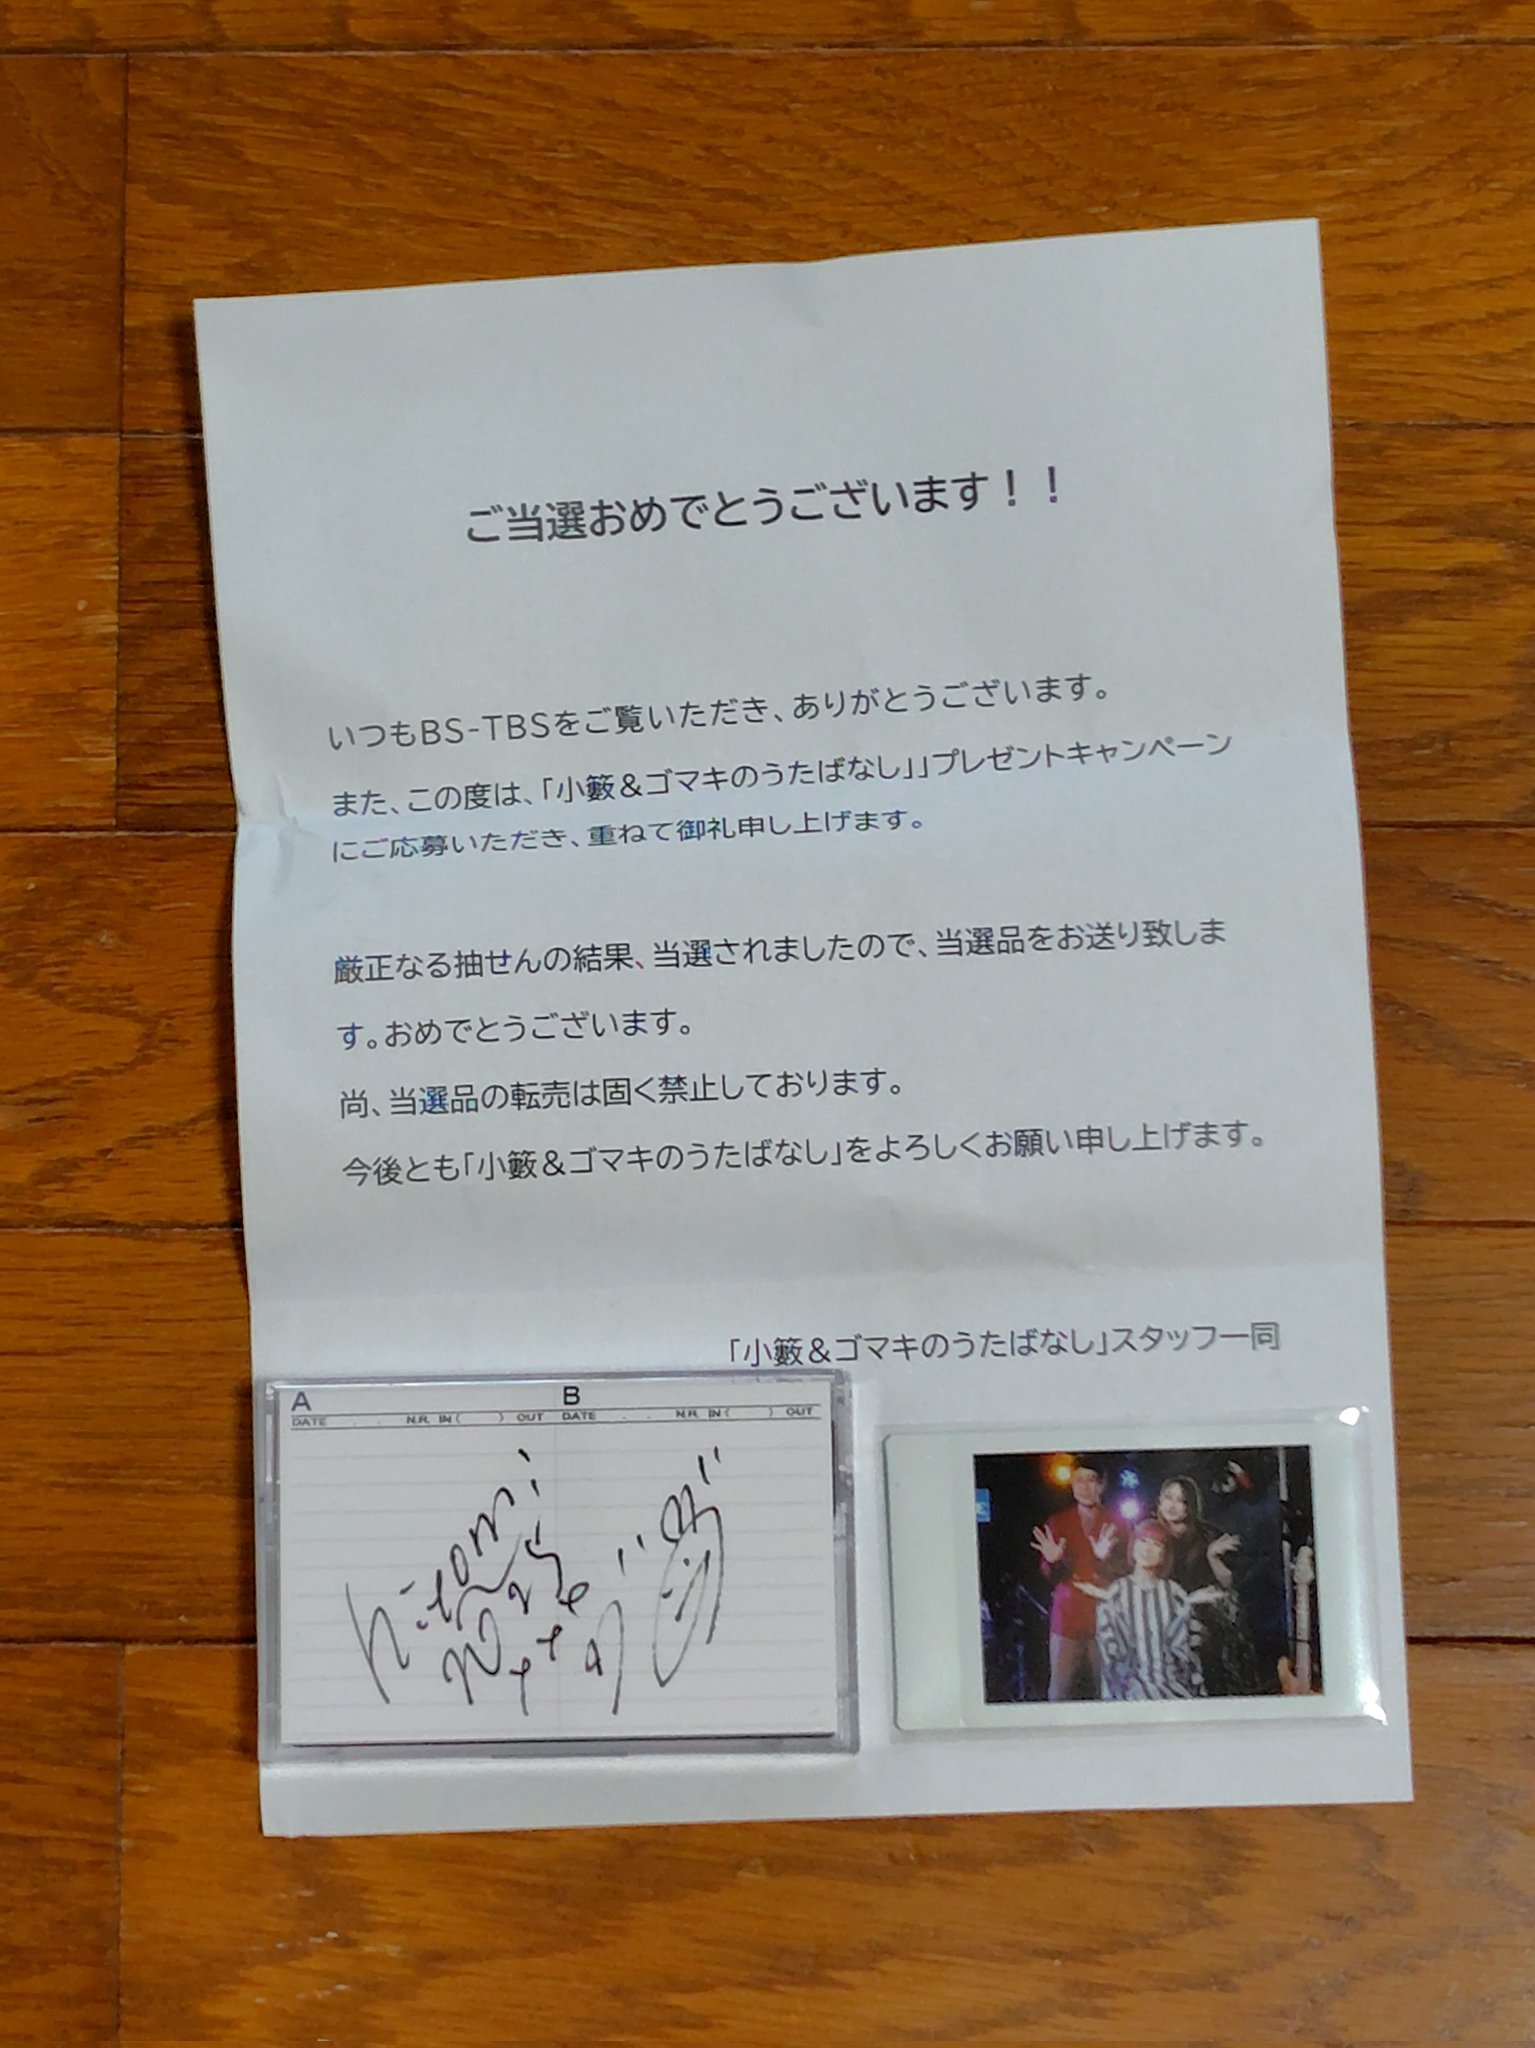 ご当選おめでとうございます！！
いつもBS-TBSをご覧いただき、ありがとうございます。
また、この度は、「小籔＆ゴマキのうたばなし」」プレゼントキャンペーン
にご応募いただき、重ねて御礼申し上げます。
厳正なる抽せんの結果、当選されましたので、当選品をお送り致しま
す。おめでとうございます。
尚、当選品の転売は固く禁止しております。
今後とも「小籔＆ゴマキのうたばなし」をよろしくお願い申し上げます。
「小籔＆ゴマキのうたばなし」スタッフ一同
A B
DATE . . N.R. IN ( ) OUT DATE . . N.R. IN ( ) OUT
hitomi